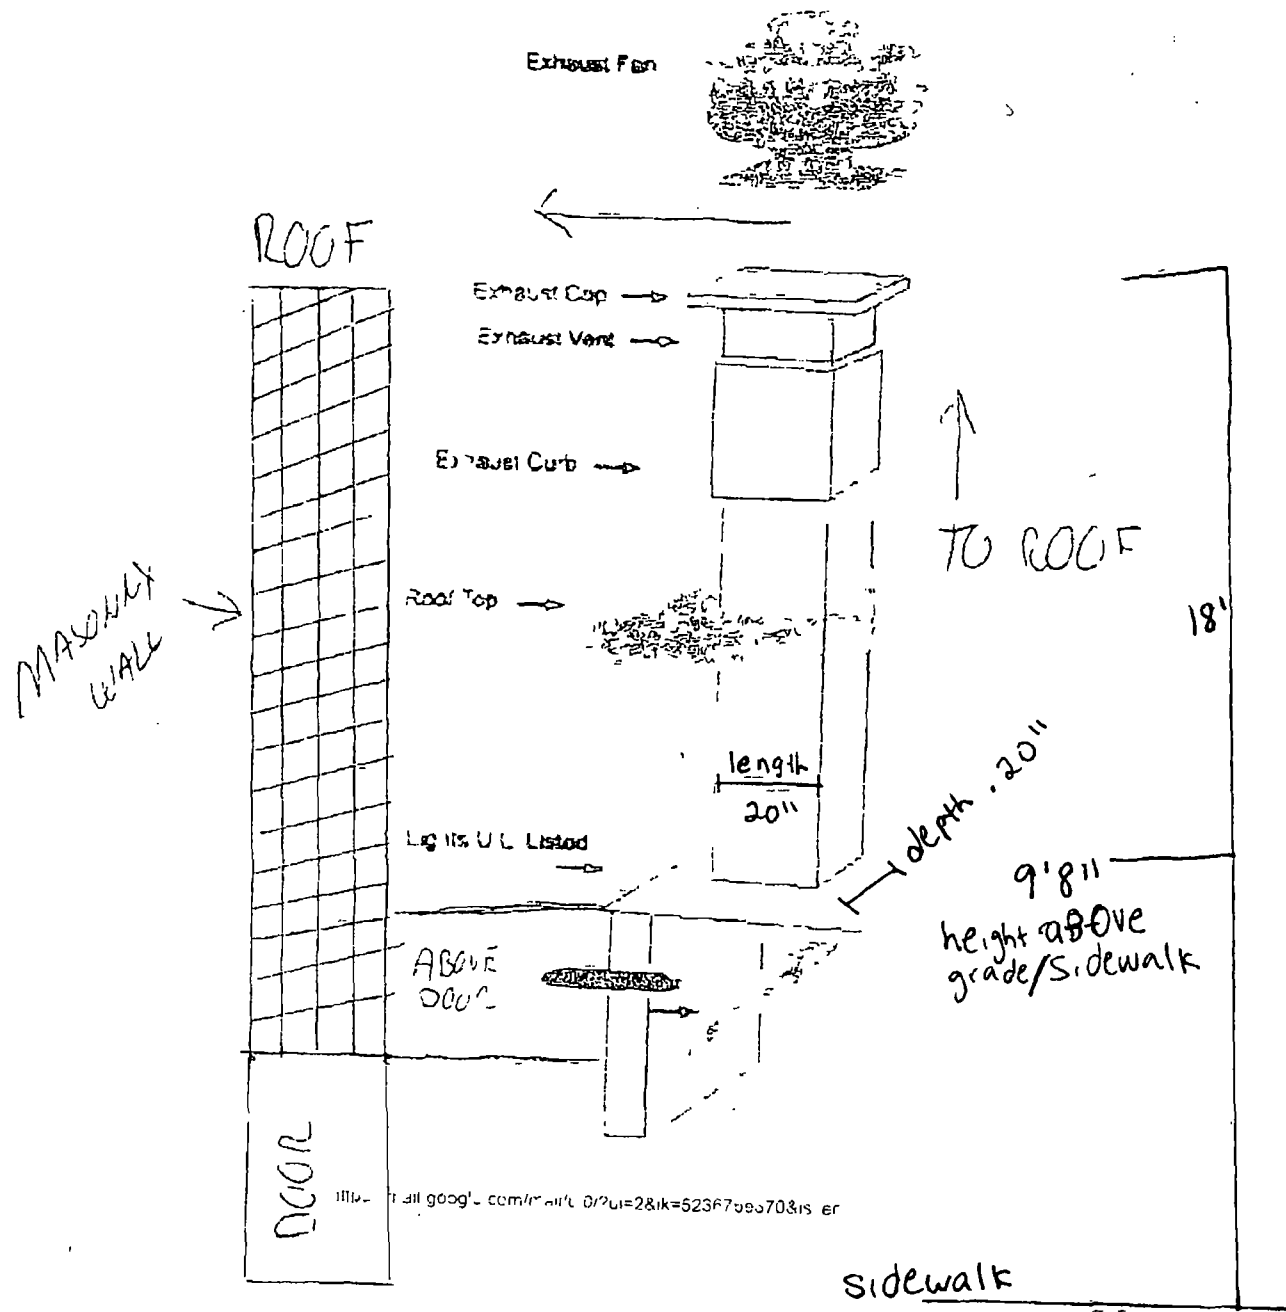 Exhaust Fan
ROOF
Exhaust Cap
Exhaust Vent
Exhaust Curb
TO ROOF
Roof Top
MASONRY
WALL
18'
length
20"
depth . 20"
Lights UL Listed
9'8"
height above
grade/sidewalk
ABOVE
DOOR
DOOR
sidewalk